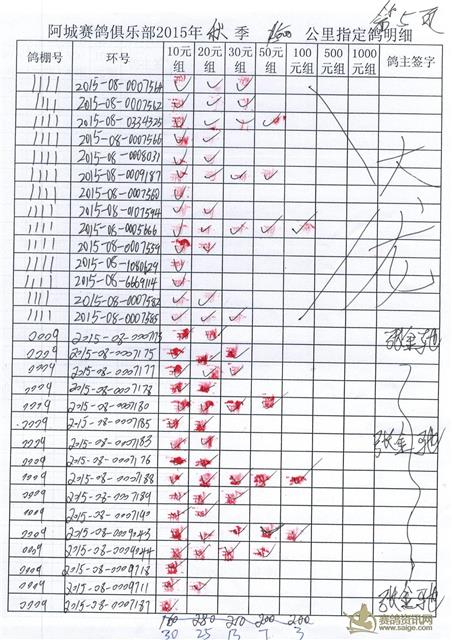 阿城赛鸽俱乐部2015年 秋 季 公里指定鸽明细
鸽棚号 环号 10元组 20元组 30元组 50元组 100元组 500元组 1000元组 鸽主签字
1111 2015-08-0007564
1111 2015-08-0007562
1111 2015-08-0334325
1111 2015-08-0007566
1111 2015-08-0008031
1111 2015-08-0009187
1111 2015-08-0007560
1111 2015-08-0107594
1111 2015-08-0005666
1111 2015-08-0007559
1111 2015-08-1080629
1111 2015-08-6669114
1111 2015-08-0007582
1111 2015-08-0007585
0009 2015-08-0007175 张金驰
0009 2015-08-0007177
0009 2015-08-0007178
0009 2015-08-0007180
0009 2015-08-0007185
0009 2015-08-0007183 张金驰
0009 2015-08-0007176
0009 2015-08-0007188
0009 2015-08-0007189
0009 2015-08-0009043
0009 2015-08-0009044
0009 2015-08-0009718
0009 2015-08-0009711
0009 2015-08-0007187 张金驰
200
30 25 13 7 3
赛鸽资讯网
www.saige.com